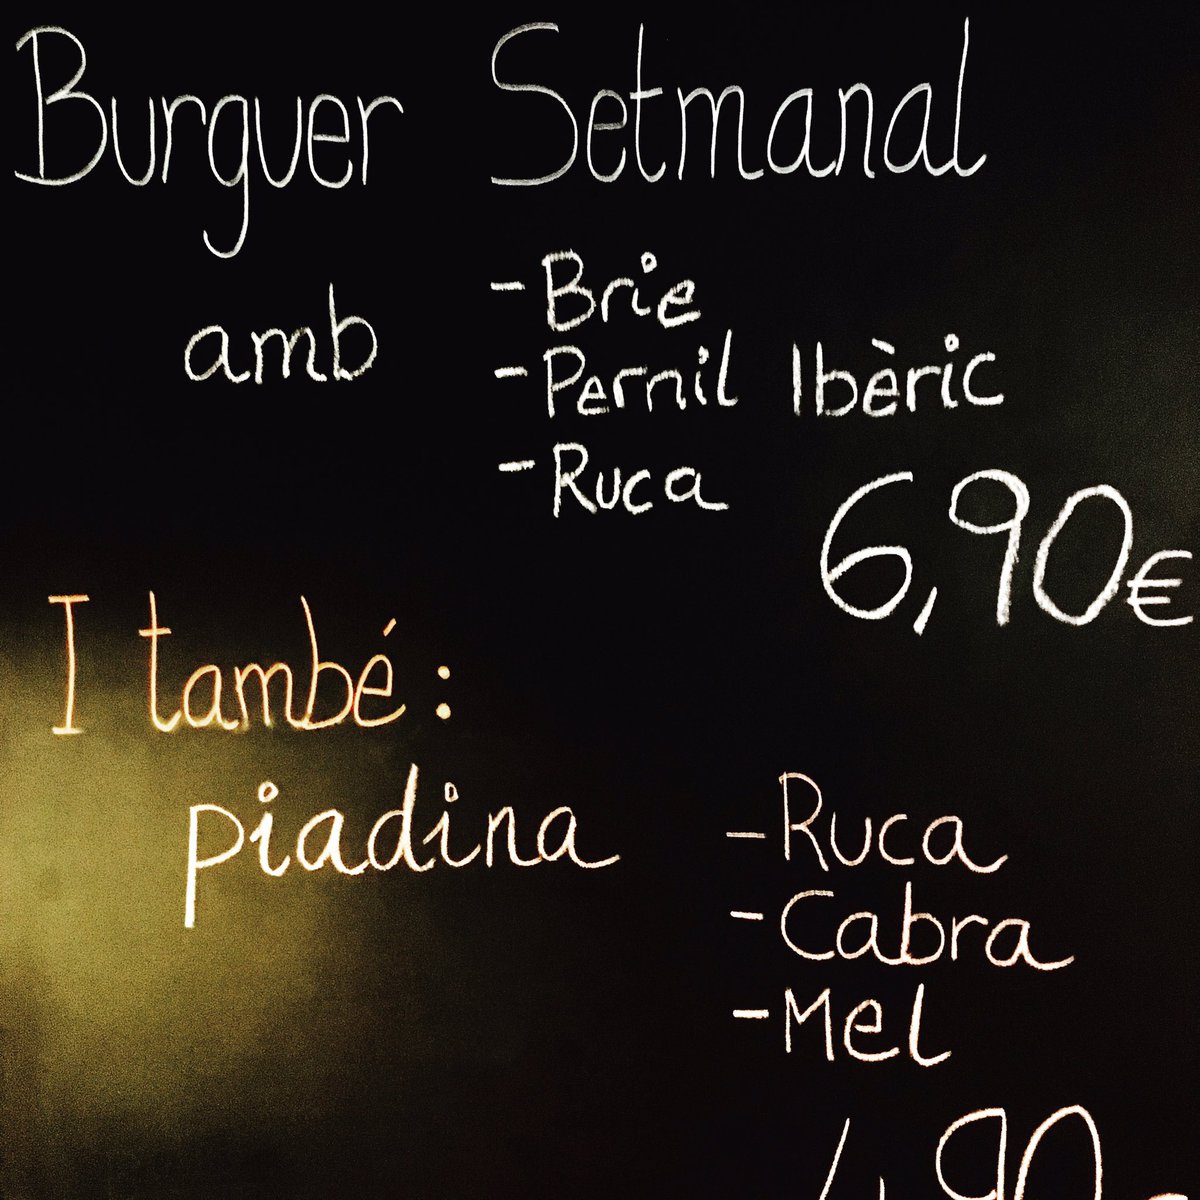 Burguer Setmanal
amb
- Brie
- Pernil Ibèric
- Ruca
6,90€
I també:
piadina
- Ruca
- Cabra
- Mel
4,90€